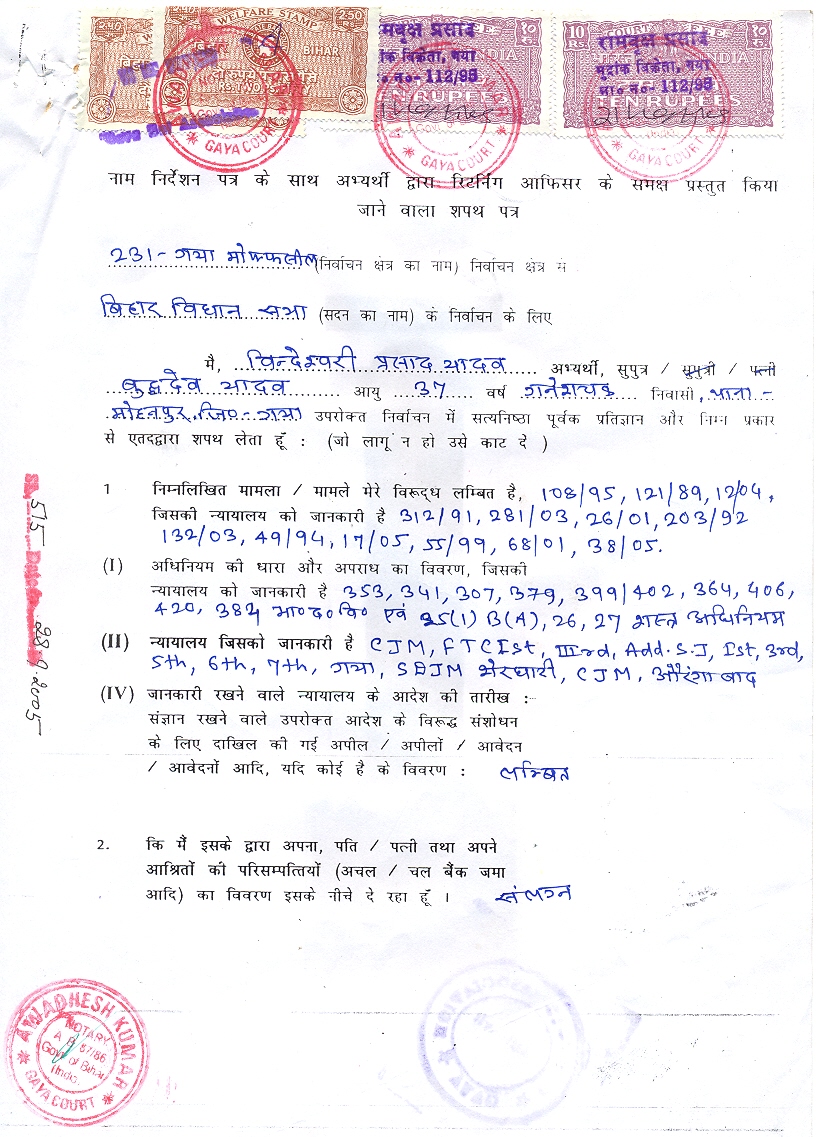 WELFARE STAMP
BIHAR
COURT FEE
INDIA
TEN RUPEES
10 Rs.
रामवृक्ष प्रसाद
मुद्रांक विक्रेता, गया
112/95
GAYA COURT
नाम निर्देशन पत्र के साथ अभ्यर्थी द्वारा रिटर्निंग आफिसर के समक्ष प्रस्तुत किया
जाने वाला शपथ पत्र
231- गया मोफ्फसील (निर्वाचन क्षेत्र का नाम) निर्वाचन क्षेत्र से
बिहार विधान सभा (सदन का नाम) के निर्वाचन के लिए
मै, विन्देश्वरी प्रसाद यादव अभ्यर्थी, सुपुत्र / सुपुत्री / पत्नी
बुद्धदेव यादव आयु 37 वर्ष गनेशचक निवासी, थाना -
मोहनपुर, जि०- गया उपरोक्त निर्वाचन में सत्यनिष्ठा पूर्वक प्रतिज्ञान और निम्न प्रकार
से एतदद्वारा शपथ लेता हूँ : (जो लागू न हो उसे काट दे )
1 निम्नलिखित मामला / मामले मेरे विरूद्ध लम्बित है, 108/95, 121/89, 12/04,
जिसकी न्यायालय को जानकारी है 312/91, 281/03, 26/01, 203/92
132/03, 49/94, 17/05, 55/99, 68/01, 38/05.
(I) अधिनियम की धारा और अपराध का विवरण, जिसकी
न्यायालय को जानकारी है 353, 341, 307, 379, 399/402, 364, 406,
420, 384 भा०द०वि० एवं 25(1) B(A), 26, 27 शस्त्र अधिनियम
(II) न्यायालय जिसको जानकारी है CJM, FTC Ist, IIIrd, Add. S.J, Ist, 3rd,
5th, 6th, 7th, गया, SDJM शेरघाटी, CJM, औरंगाबाद
(IV) जानकारी रखने वाले न्यायालय के आदेश की तारीख :
संज्ञान रखने वाले उपरोक्त आदेश के विरूद्ध संशोधन
के लिए दाखिल की गई अपील / अपीलों / आवेदन
/ आवेदनों आदि, यदि कोई है के विवरण : लम्बित
2. कि मैं इसके द्वारा अपना, पति / पत्नी तथा अपने
आश्रितों की परिसम्पत्तियों (अचल / चल बैंक जमा
आदि) का विवरण इसके नीचे दे रहा हूँ । संलग्न
515 Date 28.9.2005
AWADHESH KUMAR
NOTARY
Govt of Bihar
(India)
GAYA COURT